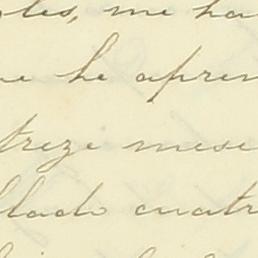 me ha
he apren
treze mese
llado cuatr